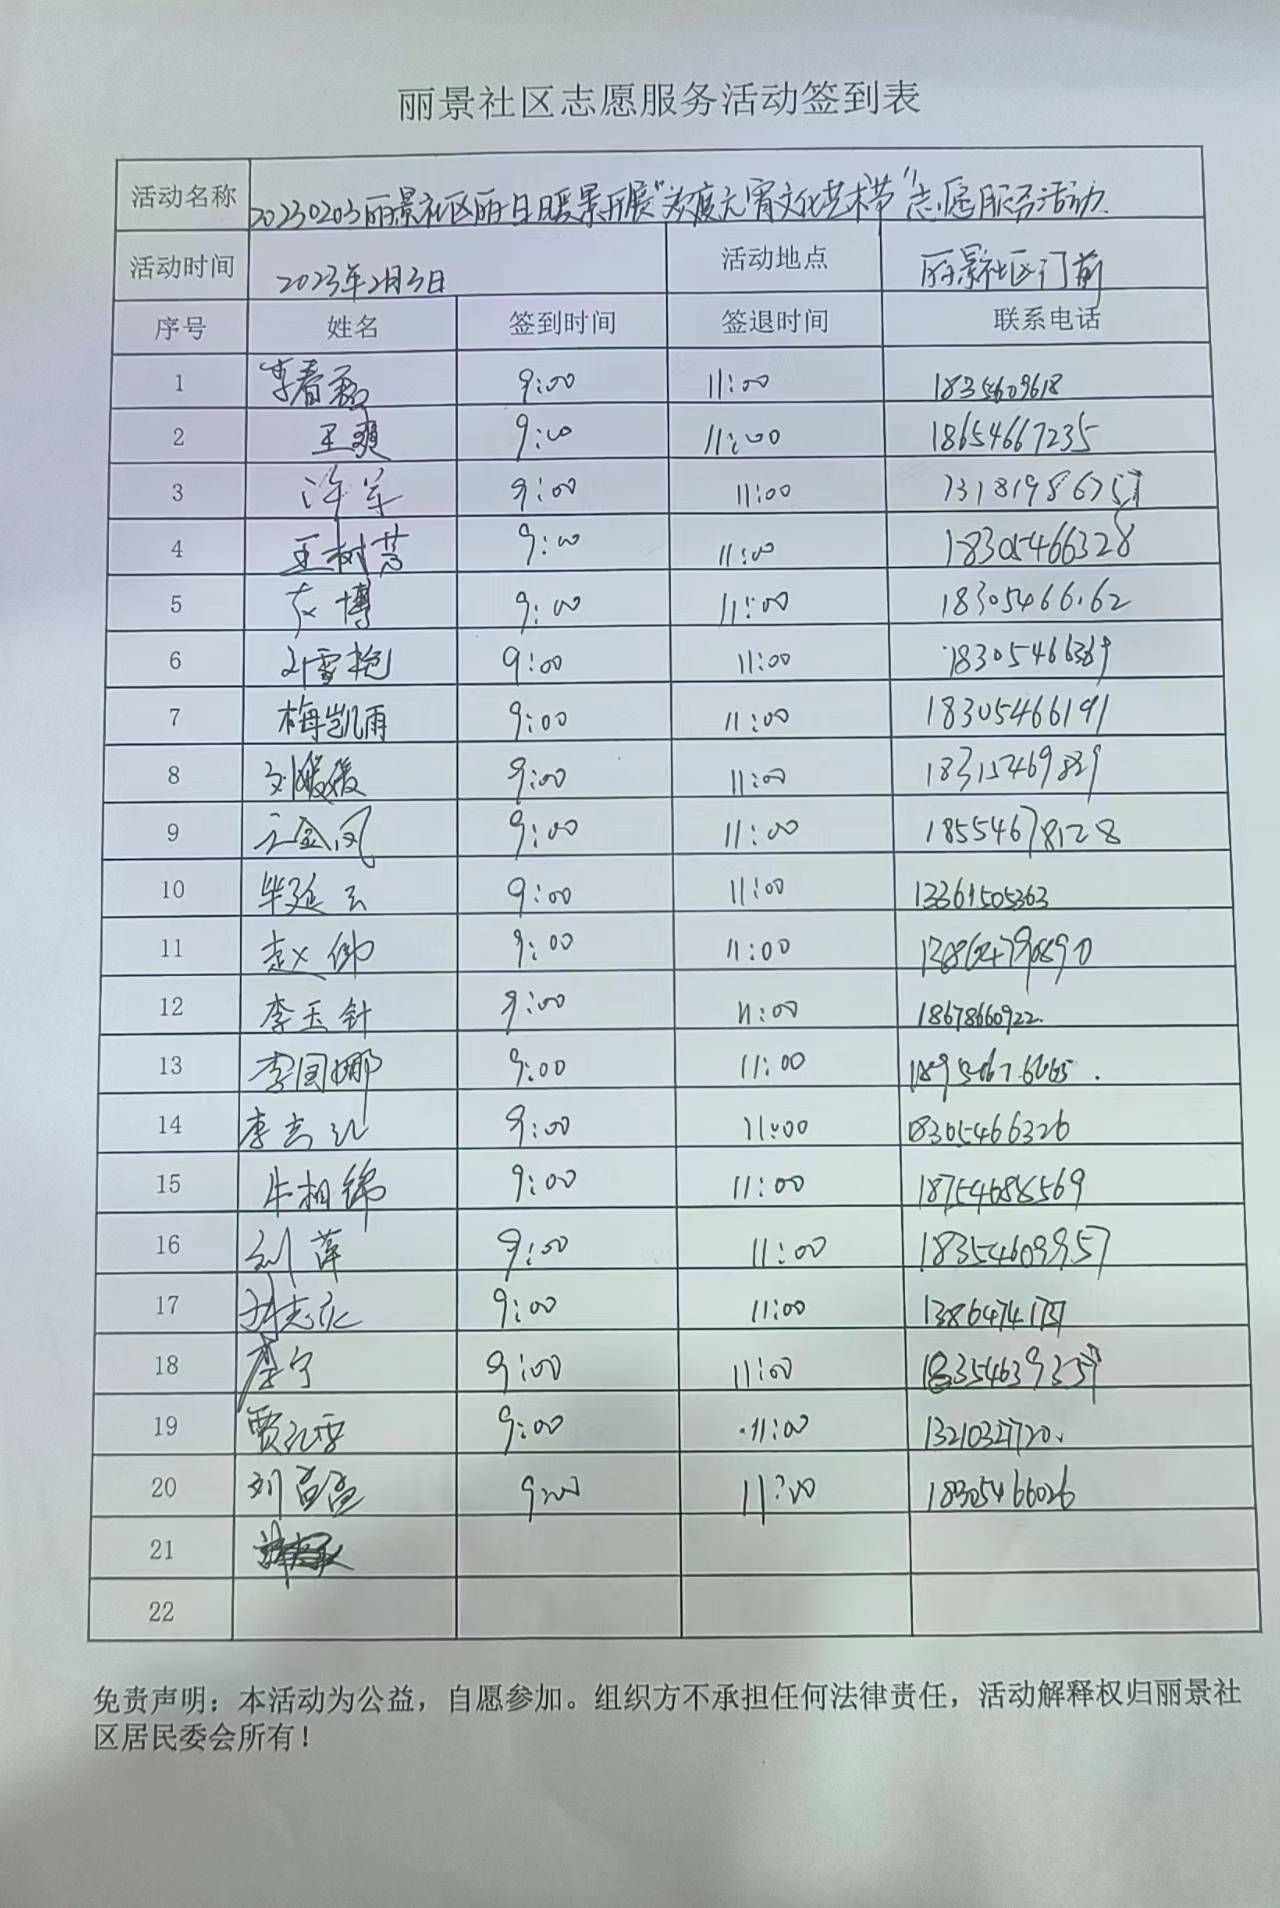 丽景社区志愿服务活动签到表
活动名称 20230203丽景社区丽日暖景开展“欢度元宵文化艺术节”志愿服务活动
活动时间 2023年2月3日 活动地点 丽景社区门前
序号 姓名 签到时间 签退时间 联系电话
1 李春 9:00 11:00 18354609618
2 王爽 9:00 11:00 18654667235
3 许军 9:00 11:00
4 王树芳 9:00 11:00 18305466328
5 博 9:00 11:00 18305466162
6 刘雪艳 9:00 11:00
7 梅凯雨 9:00 11:00 18305466191
8 刘媛媛 9:00 11:00
9 王金凤 9:00 11:00 18554678128
10 毕延云 9:00 11:00 13361505363
11 赵伟 9:00 11:00
12 李玉针 9:00 11:00 18678660922
13 李国娜 9:00 11:00
14 李志红 9:00 11:00 18305466326
15 牛相锦 9:00 11:00 18754688569
16 刘萍 9:00 11:00 18354609957
17 9:00 11:00
18 宁 9:00 11:00
19 贾 9:00 11:00
20 刘 9:00 11:00 18305466026
21
22
免责声明：本活动为公益，自愿参加。组织方不承担任何法律责任，活动解释权归丽景社
区居民委会所有！